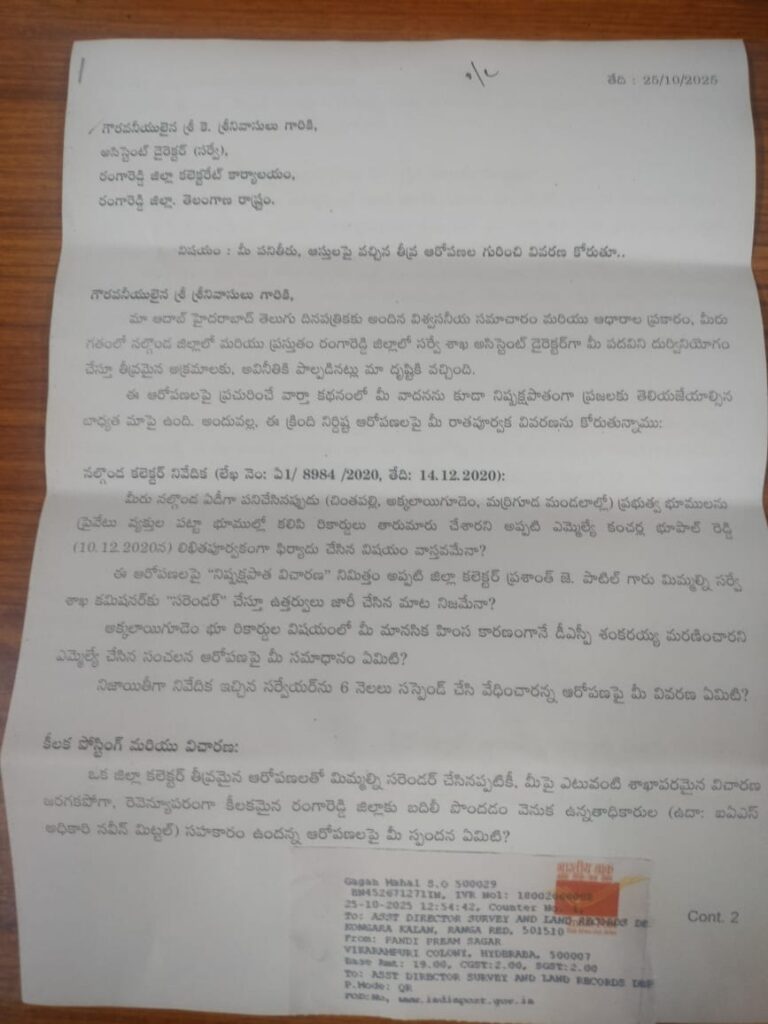 o/c
తేది : 25/10/2025
గౌరవనీయులైన శ్రీ కె. శ్రీనివాసులు గారికి,
అసిస్టెంట్ డైరెక్టర్ (సర్వే),
రంగారెడ్డి జిల్లా కలెక్టరేట్ కార్యాలయం,
రంగారెడ్డి జిల్లా. తెలంగాణ రాష్ట్రం.
విషయం : మీ పనితీరు, ఆస్తులపై వచ్చిన తీవ్ర ఆరోపణల గురించి వివరణ కోరుతూ..
గౌరవనీయులైన శ్రీ శ్రీనివాసులు గారికి,
మా ఆదాబ్ హైదరాబాద్ తెలుగు దినపత్రికకు అందిన విశ్వసనీయ సమాచారం మరియు ఆధారాల ప్రకారం, మీరు
గతంలో నల్గొండ జిల్లాలో మరియు ప్రస్తుతం రంగారెడ్డి జిల్లాలో సర్వే శాఖ అసిస్టెంట్ డైరెక్టర్‌గా మీ పదవిని దుర్వినియోగం
చేస్తూ తీవ్రమైన అక్రమాలకు, అవినీతికి పాల్పడినట్లు మా దృష్టికి వచ్చింది.
ఈ ఆరోపణలపై ప్రచురించే వార్తా కథనంలో మీ వాదనను కూడా నిష్పక్షపాతంగా ప్రజలకు తెలియజేయాల్సిన
బాధ్యత మాపై ఉంది. అందువల్ల, ఈ క్రింది నిర్దిష్ట ఆరోపణలపై మీ రాతపూర్వక వివరణను కోరుతున్నాము:
నల్గొండ కలెక్టర్ నివేదిక (లేఖ నెం: ఏ1/ 8984 /2020, తేది: 14.12.2020):
మీరు నల్గొండ ఏడీగా పనిచేసినప్పుడు (చింతపల్లి, అక్కలాయిగూడెం, మర్రిగూడ మండలాల్లో) ప్రభుత్వ భూములను
ప్రైవేటు వ్యక్తుల పట్టా భూముల్లో కలిపి రికార్డులు తారుమారు చేశారని అప్పటి ఎమ్మెల్యే కంచర్ల భూపాల్ రెడ్డి
(10.12.2020న) లిఖితపూర్వకంగా ఫిర్యాదు చేసిన విషయం వాస్తవమేనా?
ఈ ఆరోపణలపై "నిష్పక్షపాత విచారణ" నిమిత్తం అప్పటి జిల్లా కలెక్టర్ ప్రశాంత్ జె. పాటిల్ గారు మిమ్మల్ని సర్వే
శాఖ కమిషనర్‌కు "సరెండర్" చేస్తూ ఉత్తర్వులు జారీ చేసిన మాట నిజమేనా?
అక్కలాయిగూడెం భూ రికార్డుల విషయంలో మీ మానసిక హింస కారణంగానే డీఎస్పీ శంకరయ్య మరణించారని
ఎమ్మెల్యే చేసిన సంచలన ఆరోపణపై మీ సమాధానం ఏమిటి?
నిజాయితీగా నివేదిక ఇచ్చిన సర్వేయర్‌ను 6 నెలలు సస్పెండ్ చేసి వేధించారన్న ఆరోపణపై మీ వివరణ ఏమిటి?
కీలక పోస్టింగ్ మరియు విచారణ:
ఒక జిల్లా కలెక్టర్ తీవ్రమైన ఆరోపణలతో మిమ్మల్ని సరెండర్ చేసినప్పటికీ, మీపై ఎటువంటి శాఖాపరమైన విచారణ
జరగకపోగా, రెవెన్యూపరంగా కీలకమైన రంగారెడ్డి జిల్లాకు బదిలీ పొందడం వెనుక ఉన్నతాధికారుల (ఉదా: ఐఏఎస్
అధికారి నవీన్ మిట్టల్) సహకారం ఉందన్న ఆరోపణలపై మీ స్పందన ఏమిటి?
भारतीय डाक
Gagan Mahal S.O 500029
EN452671271IN, IVR No1:
25-10-2025 12:54:42, Counter No: 1,
To: ASST DIRECTOR SURVEY AND LAND RECORDS DE
KONGARA KALAN, RANGA RED, 501510
From: PANDI PREAM SAGAR
VIKARAMPURI COLONY, HYDERABA, 500007
Base Amt: 19.00, CGST:2.00, SGST:2.00
To: ASST DIRECTOR SURVEY AND LAND RECORDS DEP
P.Mode: QR
POD:No, www.indiapost.gov.in
Cont. 2